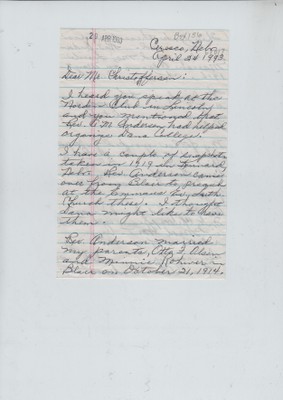 29 APR 1993
Ceresco, Nebr.
April 26 1993
Dear Mr. Christofferson:
I heard you speak at the
Norden Club in Lincoln
and you mentioned that
Rev. A. M. Anderson had helped
organize Dana College.
I have a couple of snapshots
taken in 1919 in
Nebr. Rev. Anderson came
over from Blair to preach
at the Luth.
Church there. I thought
Dana might like to have
them.
Rev. Anderson married
my parents, Otto I. Olsen
and Minnie Rohwer in
Blair on October 21, 1914.